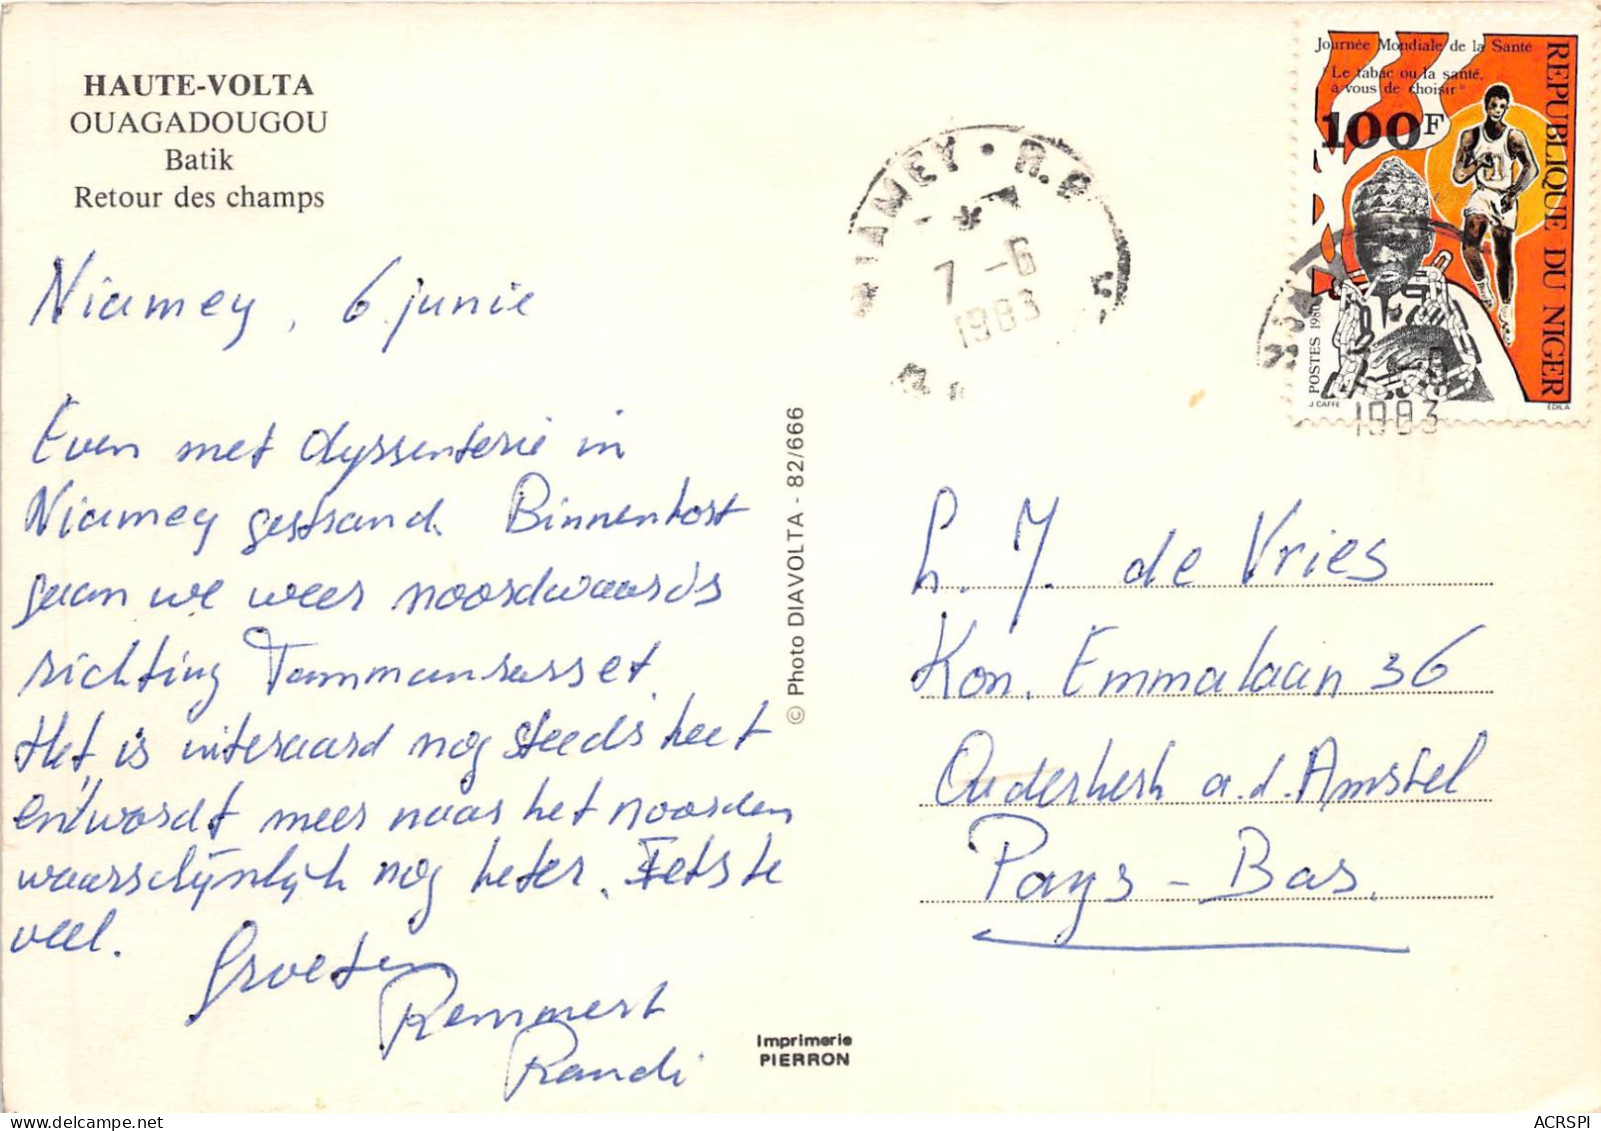 HAUTE-VOLTA
OUAGADOUGOU
Batik
Retour des champs
Niamey, 6 junie
Even met dyssenterie in
Niamey gestrand. Binnenkort
gaan we weer noordwaards
richting Tammanrasset.
Het is uiteraard nog steeds heet
en wordt meer naar het noorden
waarschijnlijk nog heter. Iets te
veel.
Groeten
Remmert
Randi
© Photo DIAVOLTA - 82/666
Imprimerie
PIERRON
NIAMEY · R.P
7 -6
1983
Journée Mondiale de la Santé
"Le tabac ou la santé,
à vous de choisir"
100F
REPUBLIQUE DU NIGER
POSTES 1980
J. CAFFE
EDILA
1983
L. J. de Vries
Kon. Emmalaan 36
Ouderkerk a.d. Amstel
Pays-Bas.
ACRSPI